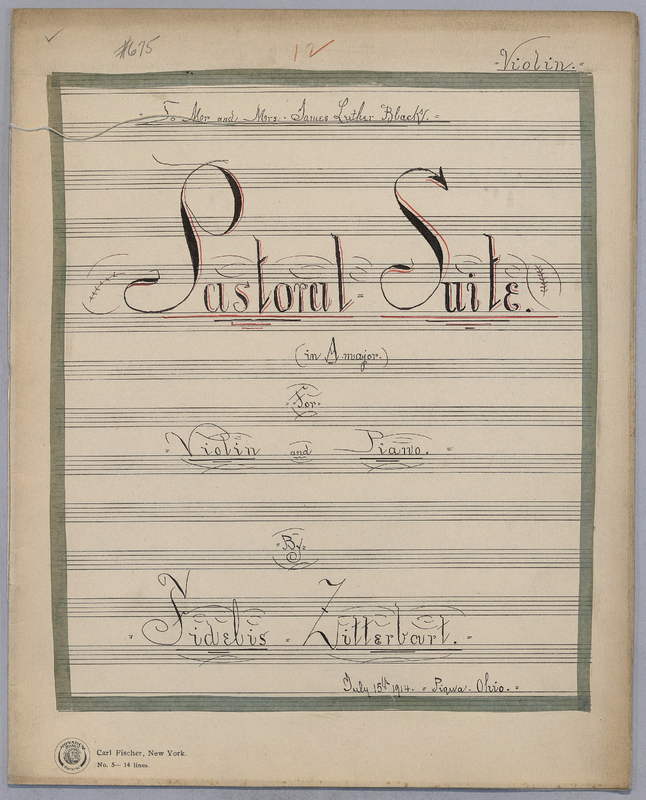 #675
12
Violin.
To Mr and Mrs. James Luther Black.
Pastoral Suite.
(in A major.)
For
Violin and Piano.
By
Fidelis Zitterbart.
July 15th 1914. Piqua. Ohio.
Carl Fischer, New York.
No. 5— 14 lines.